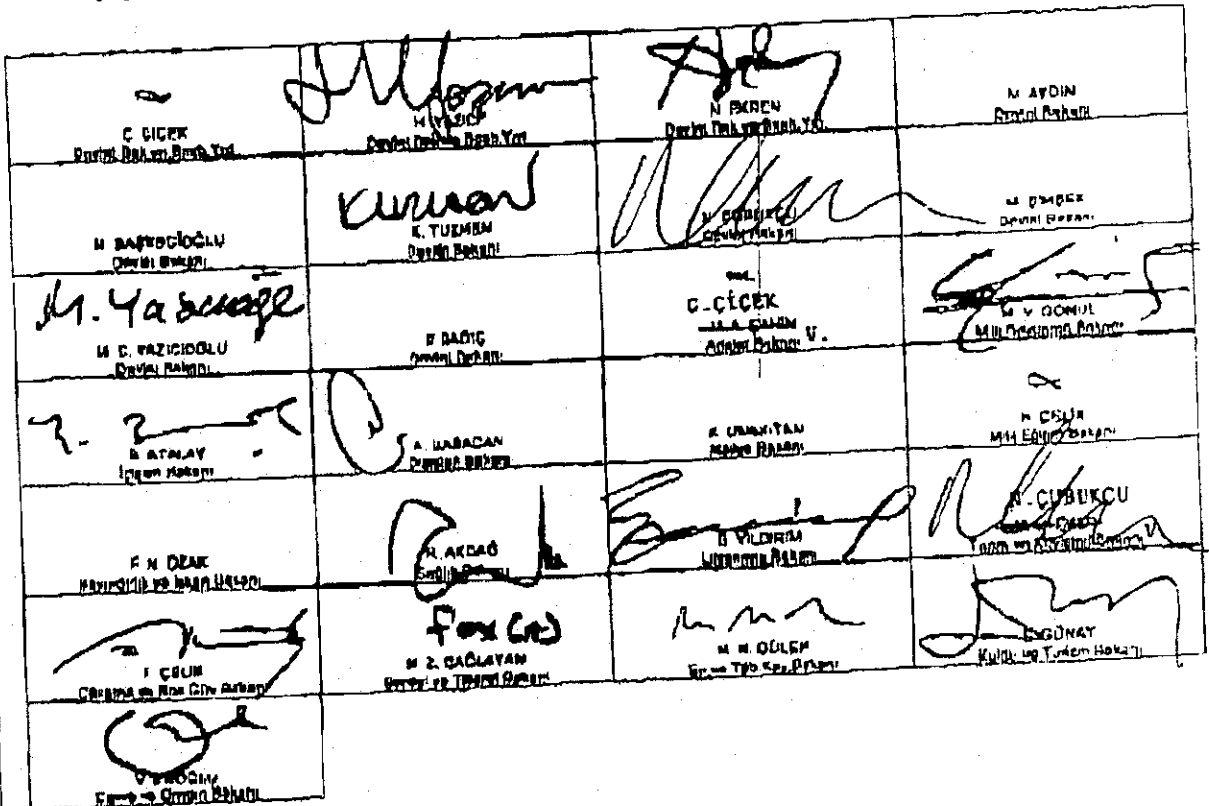 C. ÇİÇEK
Devlet Bak. ve Başb. Yrd.
H. YAZICI
Devlet Bak. ve Başb. Yrd.
N. EKREN
Devlet Bak. ve Başb. Yrd.
M. AYDIN
Devlet Bakanı
M. BAŞESGİOĞLU
Devlet Bakanı
K. TÜZMEN
Devlet Bakanı
N. ÇUBUKÇU
Devlet Bakanı
M. ŞİMŞEK
Devlet Bakanı
M. Yazıcıoğlu
M. S. YAZICIOĞLU
Devlet Bakanı
E. BAĞIŞ
Devlet Bakanı
C. ÇİÇEK
M. A. ŞAHİN
Adalet Bakanı V.
M. V. GÖNÜL
Milli Savunma Bakanı
B. ATALAY
İçişleri Bakanı
A. BABACAN
Dışişleri Bakanı
K. UNAKITAN
Maliye Bakanı
H. ÇELİK
Milli Eğitim Bakanı
F. N. ÖZAK
Bayındırlık ve İskan Bakanı
R. AKDAĞ
Sağlık Bakanı
B. YILDIRIM
Ulaştırma Bakanı
N. ÇUBUKÇU
Tarım ve Köyişleri Bakanı V.
F. ÇELİK
Çalışma ve Sos. Güv. Bakanı
M. Z. ÇAĞLAYAN
Sanayi ve Ticaret Bakanı
M. H. GÜLER
En. ve Tab. Kay. Bakanı
E. GÜNAY
Kültür ve Turizm Bakanı
V. EROĞLU
Çevre ve Orman Bakanı